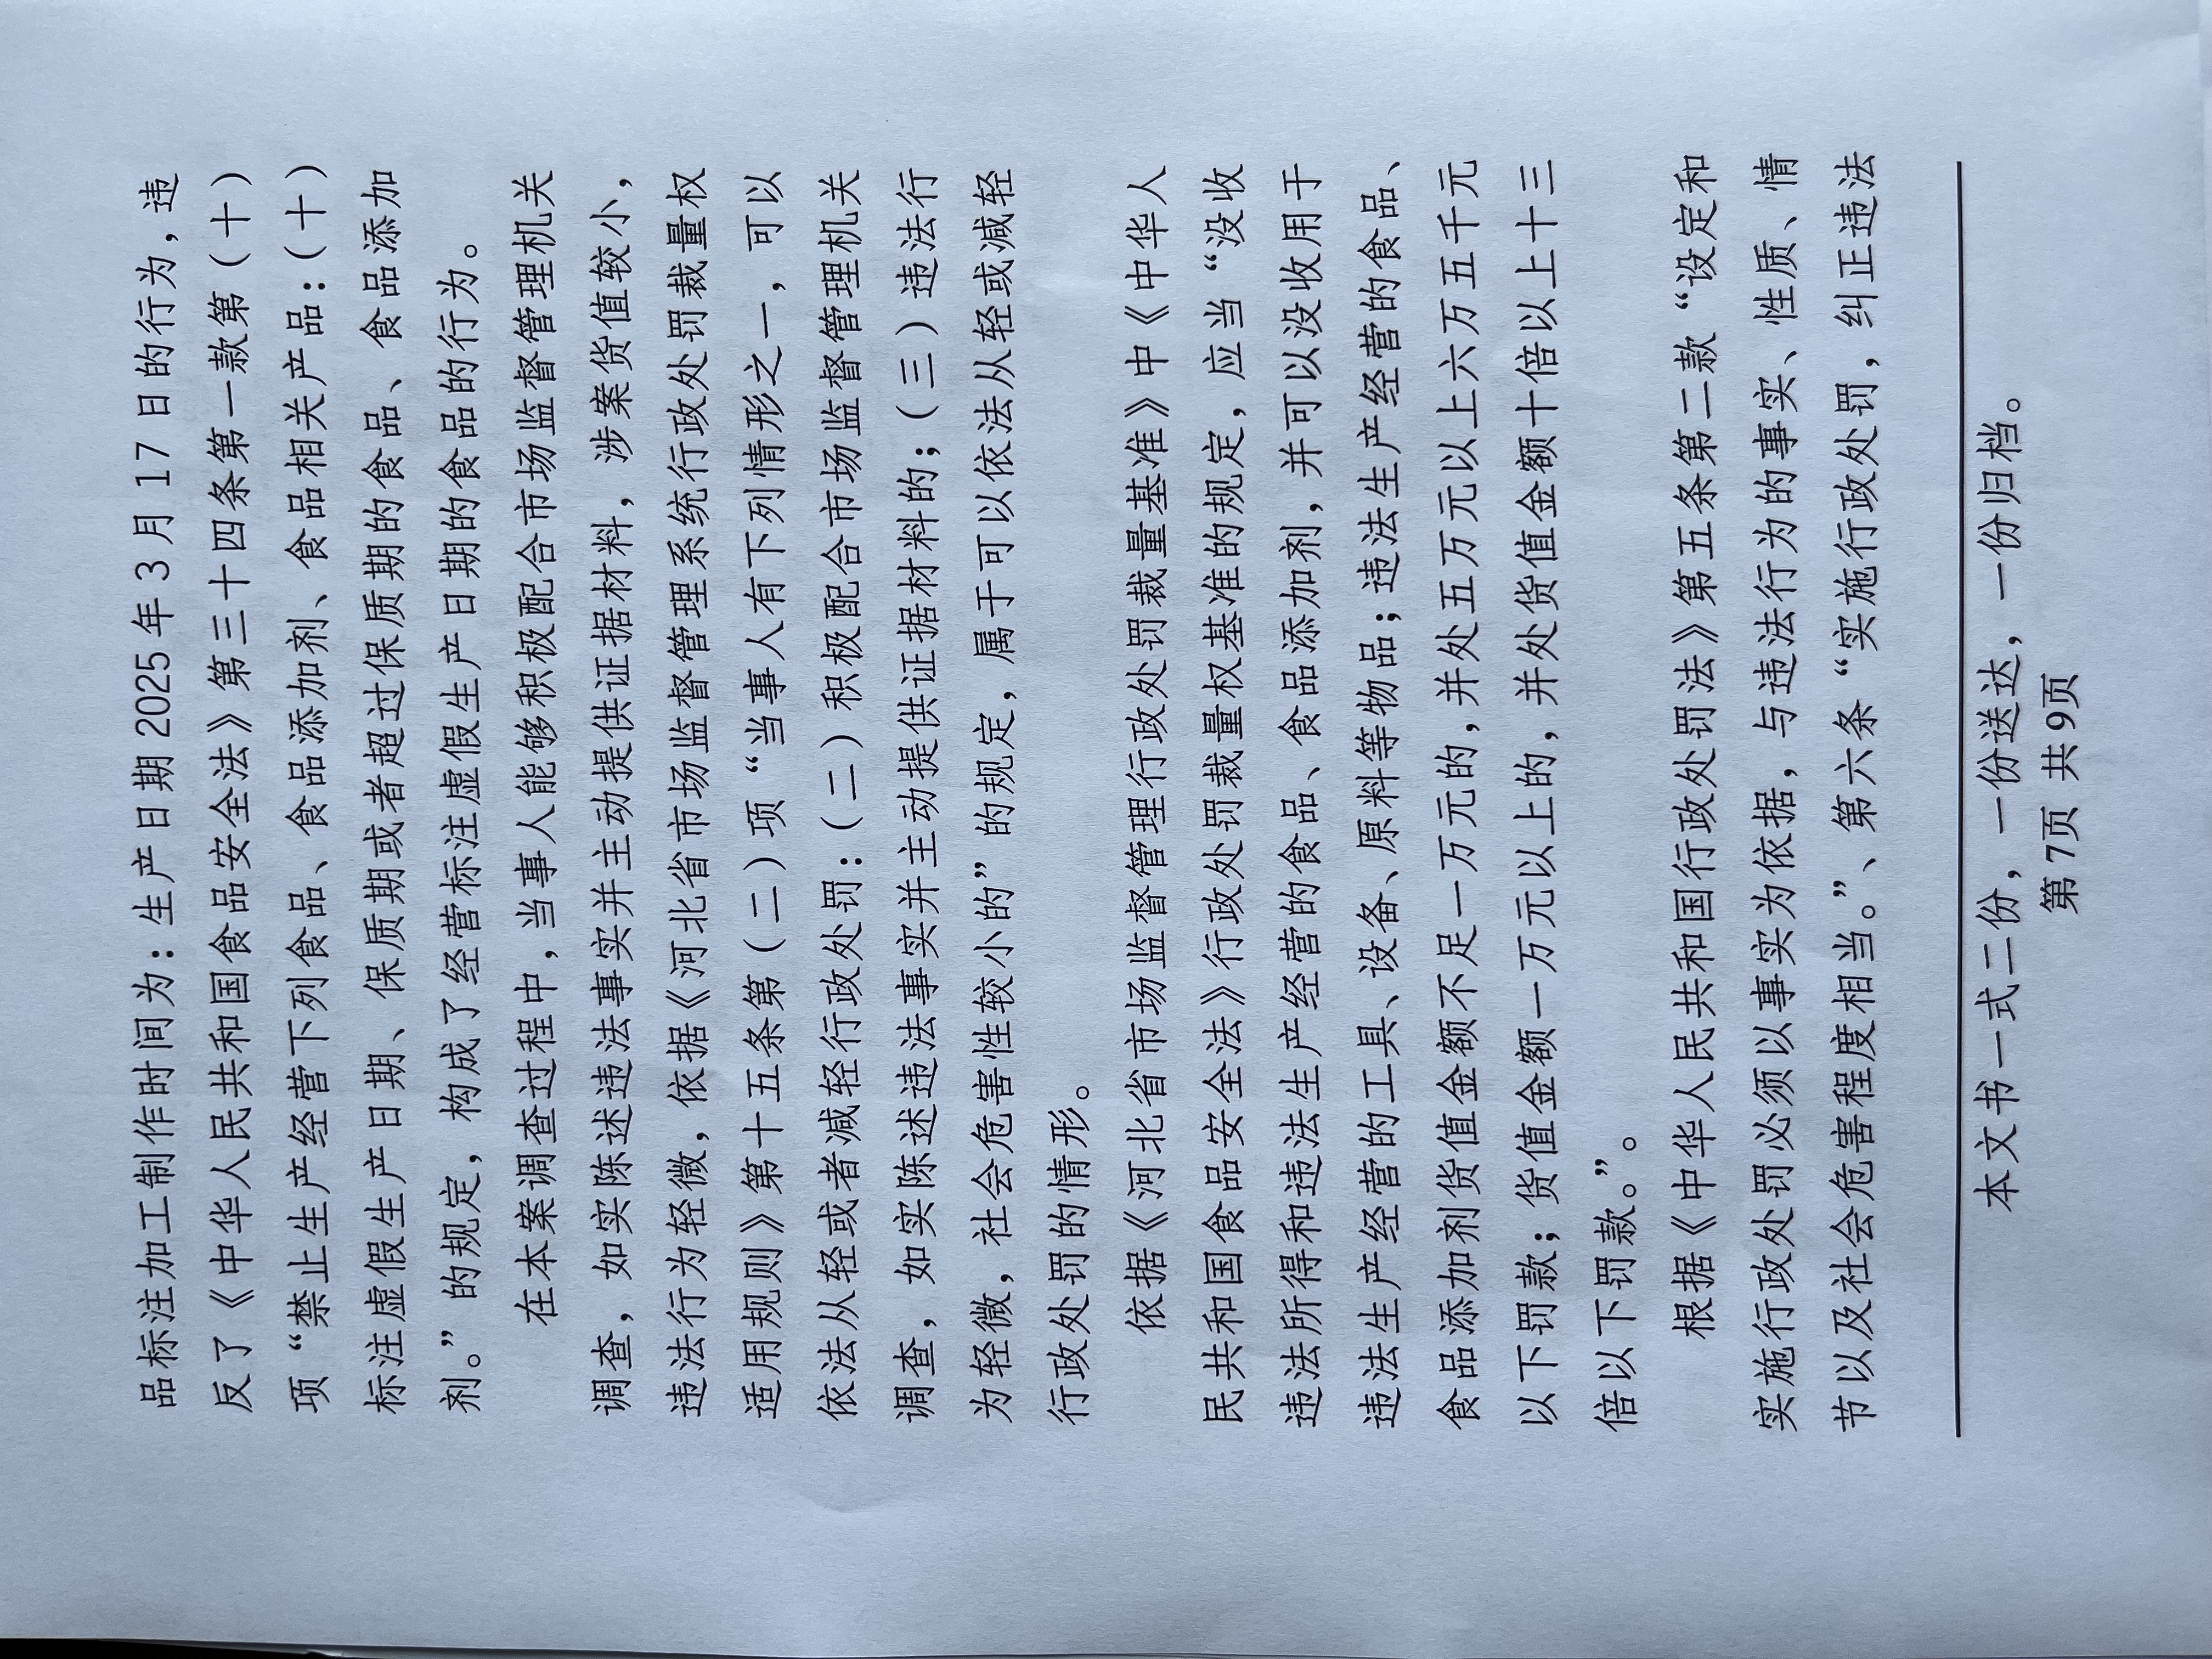 品标注加工制作时间为：生产日期 2025 年 3 月 17 日的行为，违
反了《中华人民共和国食品安全法》第三十四条第一款第（十）
项“禁止生产经营下列食品、食品添加剂、食品相关产品：（十）
标注虚假生产日期、保质期或者超过保质期的食品、食品添加
剂。”的规定，构成了经营标注虚假生产日期的食品的行为。
在本案调查过程中，当事人能够积极配合市场监督管理机关
调查，如实陈述违法事实并主动提供证据材料，涉案货值较小，
违法行为轻微，依据《河北省市场监督管理系统行政处罚裁量权
适用规则》第十五条第（二）项“当事人有下列情形之一，可以
依法从轻或者减轻行政处罚：（二）积极配合市场监督管理机关
调查，如实陈述违法事实并主动提供证据材料的；（三）违法行
为轻微，社会危害性较小的”的规定，属于可以依法从轻或减轻
行政处罚的情形。
依据《河北省市场监督管理行政处罚裁量基准》中《中华人
民共和国食品安全法》行政处罚裁量权基准的规定，应当“没收
违法所得和违法生产经营的食品、食品添加剂，并可以没收用于
违法生产经营的工具、设备、原料等物品；违法生产经营的食品、
食品添加剂货值金额不足一万元的，并处五万元以上六万五千元
以下罚款；货值金额一万元以上的，并处货值金额十倍以上十三
倍以下罚款。”。
根据《中华人民共和国行政处罚法》第五条第二款“设定和
实施行政处罚必须以事实为依据，与违法行为的事实、性质、情
节以及社会危害程度相当。”、第六条“实施行政处罚，纠正违法
本文书一式二份，一份送达，一份归档。
第 7页 共 9页